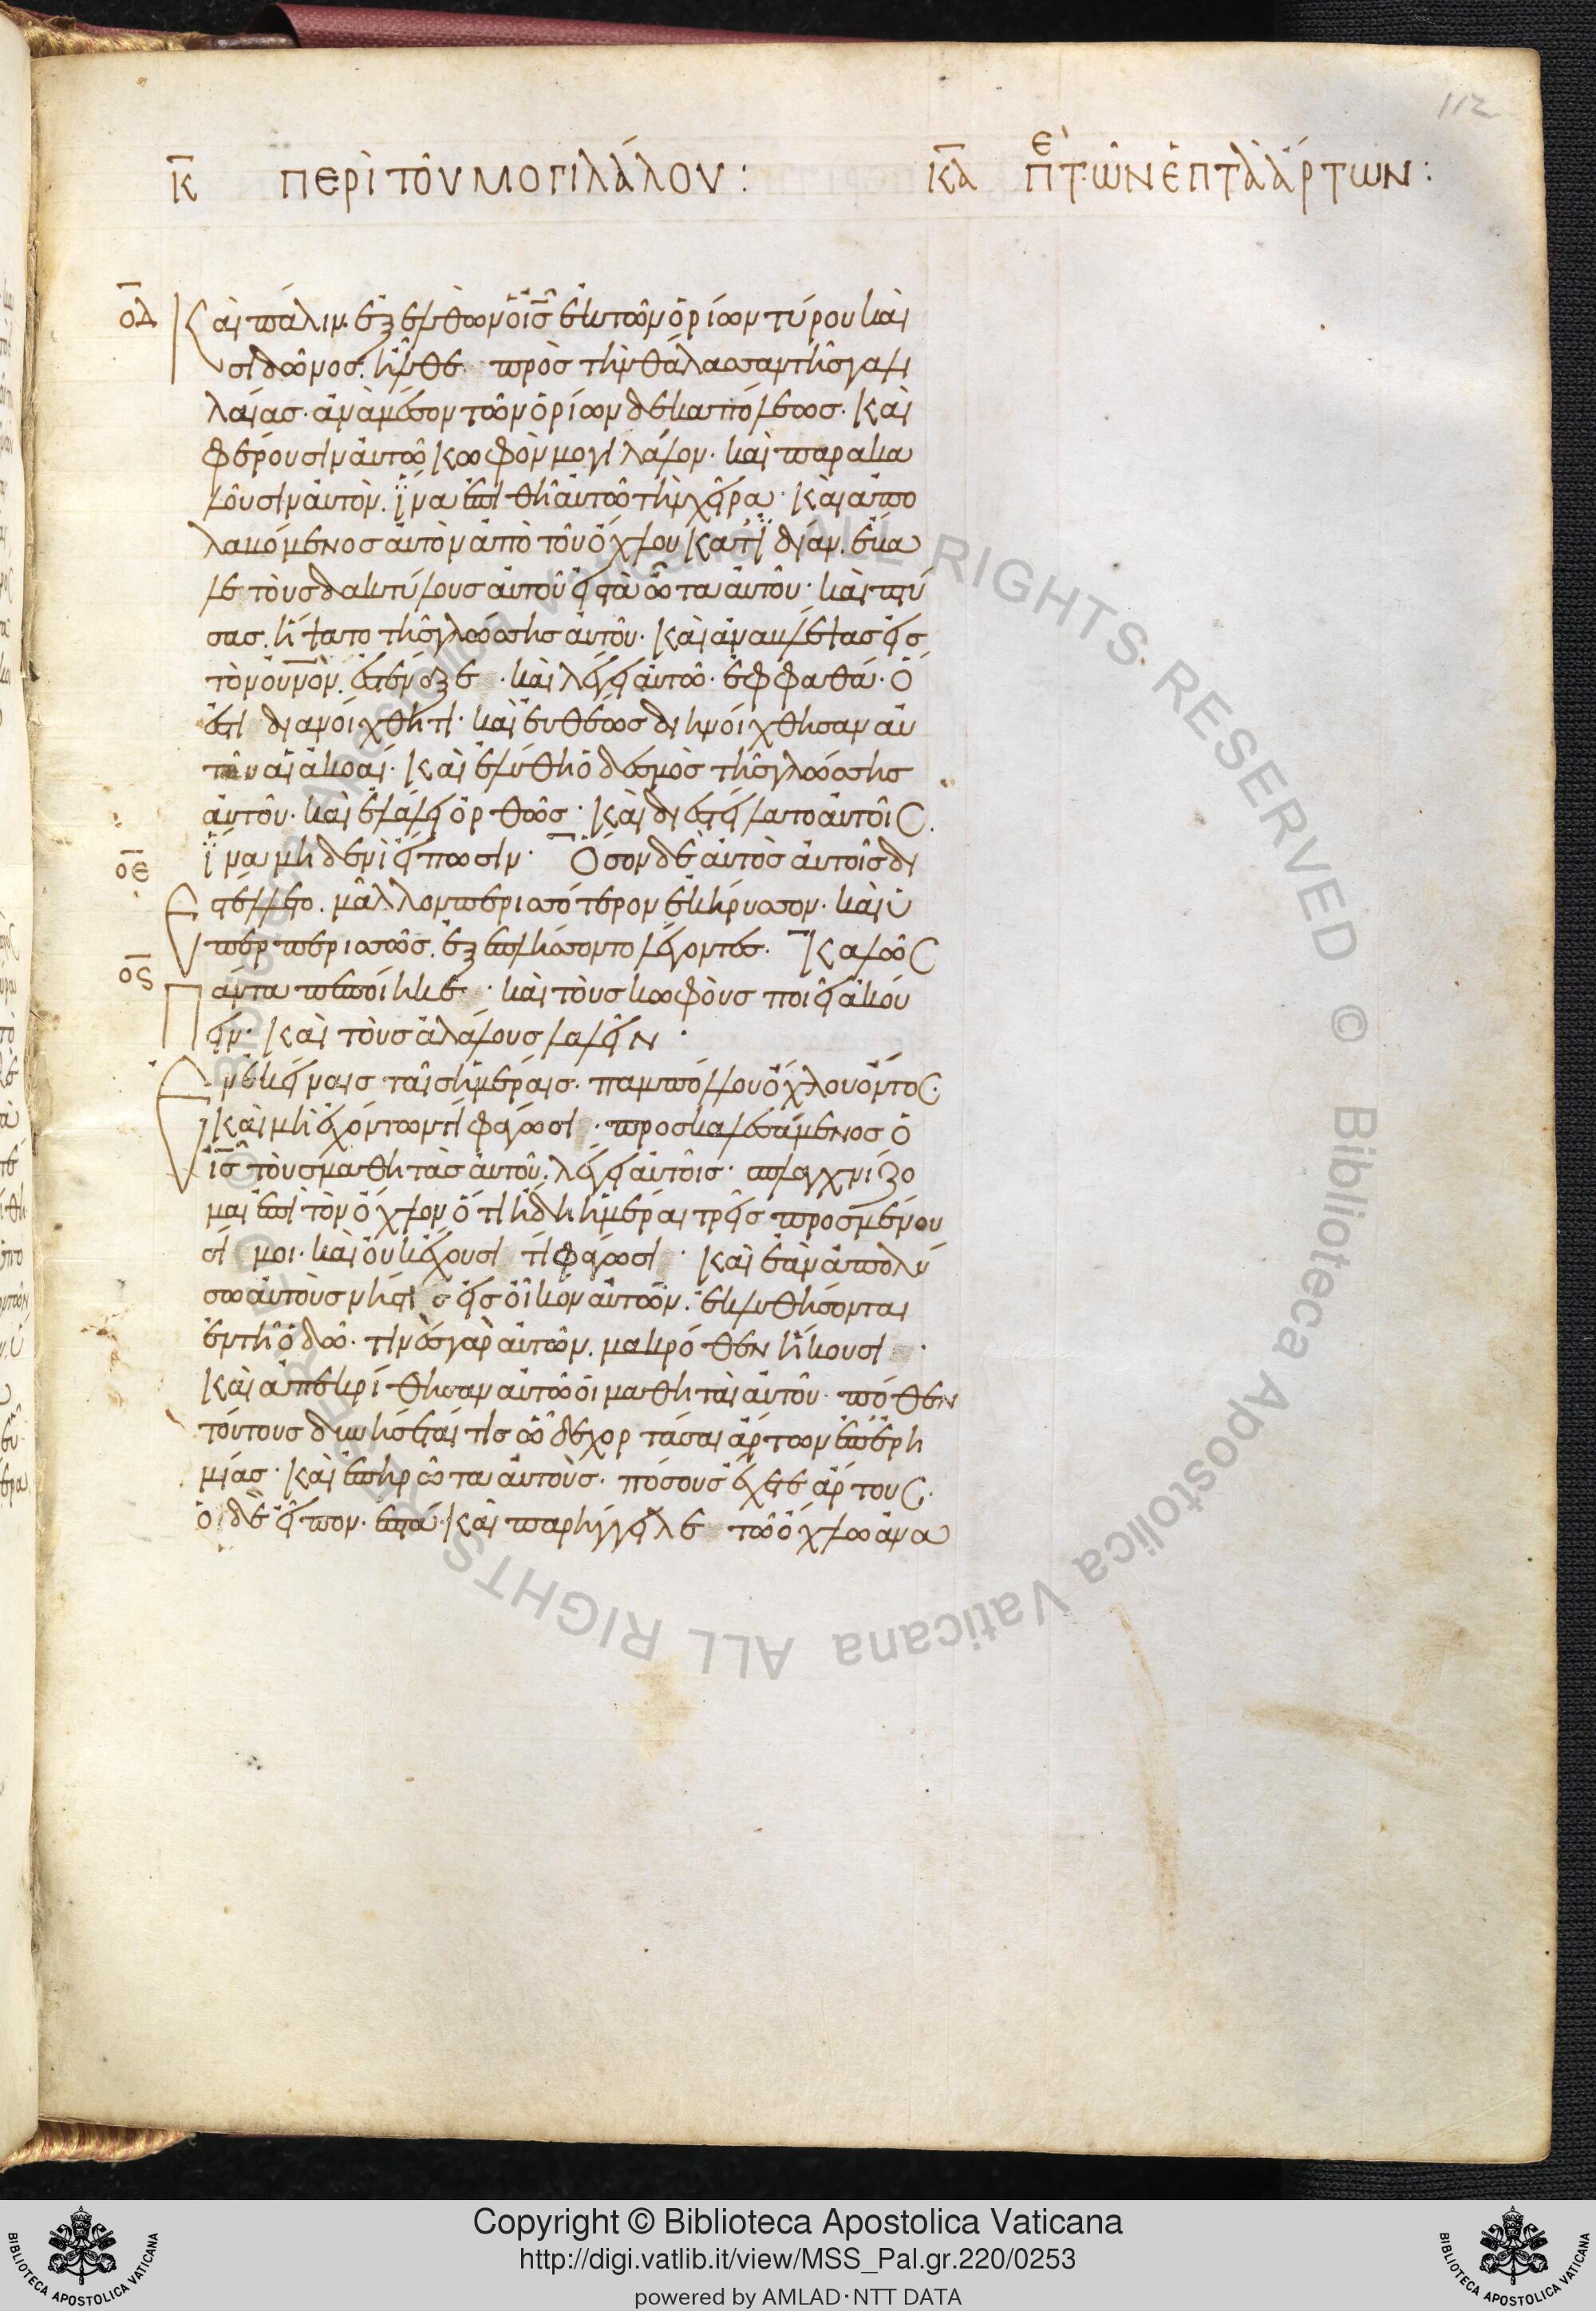 112
κ̅ ΠΕΡῚ ΤΟῦ ΜΟΓΙΛΆΛΟΥ :
κ̅α̅ ΠΕ̅Ὶ ΤῶΝ ἙΠΤᾺ ἌΡΤΩΝ :
ο̅δ̅ Καὶ πάλιν ἐξελθὼν ὁ ι̅ς̅ ἐκ τῶν ὁρίων τύρου καὶ
σιδῶνος. ἦλθε πρὸς τὴν θάλασσαν τῆς γαλι
λαίας· ἀνὰ μέσον τῶν ὁρίων δεκαπόλεως· Καὶ
φέρουσιν αὐτῶ κωφὸν μογιλάλον· καὶ παρακα
λοῦσιν αὐτὸν. ἵνα ἐπιθῆ αὐτῶ τὴν χεῖρα· Καὶ ἀπο
λαβόμενος αὐτὸν ἀπὸ τοῦ ὄχλου κατϊδίαν. ἔβα
λε τοὺς δακτύλους αὐτοῦ εἰς τὰ ὦτα αὐτοῦ· καὶ πτύ
σας. ἥψατο τῆς γλώσσης αὐτοῦ· Καὶ ἀναβλέψας εἰς
τὸν ο̅υ̅ν̅ὸν. ἐστέναξε· καὶ λέγει αὐτῶ· ἐφφαθά· ὅ
ἐστι διανοίχθητι· καὶ εὐθέως διηνοίχθησαν αὐ
τοῦ αἱ ἀκοαί· Καὶ ἐλύθη ὁ δεσμὸς τῆς γλώσσης
αὐτοῦ· καὶ ἐλάλει ὀρθῶς· Καὶ διεστείλατο αὐτοῖς.
ἵνα μηδενὶ εἴπωσιν· Ὅσον δὲ αὐτὸς αὐτοῖς δι
ο̅ε̅ εστέλλετο. μᾶλλον περισσότερον ἐκήρυσσον· καὶ ὑ
περπερισσῶς. ἐξεπλήσσοντο λέγοντες· Καλῶς
ο̅ς̅ Πάντα πεποίηκε· καὶ τοὺς κωφοὺς ποιεῖ ἀκού
ειν· Καὶ τοὺς ἀλάλους λαλεῖν·
Ἐν ἐκείναις ταῖς ἡμέραις· παμπόλλου ὄχλου ὄντος·
Καὶ μὴ ἐχόντων τί φάγωσι· προσκαλεσάμενος ὁ
ι̅ς̅ τοὺς μαθητὰς αὐτοῦ. λέγει αὐτοῖς· σπλαγχνίζο
μαι ἐπὶ τὸν ὄχλον ὅτι ἤδη ἡμέραι τρεῖς προσμένου
σί μοι· καὶ οὐκ ἔχουσι τί φάγωσι· Καὶ ἐὰν ἀπολύ
σω αὐτοὺς νήστις εἰς οἶκον αὐτῶν. ἐκλυθήσονται
ἐν τῆ ὁδῶ· τινὲς γὰρ αὐτῶν. μακρόθεν ἥκουσι·
Καὶ ἀπεκρίθησαν αὐτῶ οἱ μαθηταὶ αὐτοῦ· πόθεν
τούτους δυνήσεταί τις ὧδε χορτάσαι ἄρτων ἐπ ἐρη
μίας· Καὶ ἐπηρώτα αὐτοὺς· πόσους ἔχετε ἄρτους·
οἱ δὲ εἶπον· ἑπτά· Καὶ παρήγγειλε τῶ ὄχλω ἀνα
© Biblioteca Apostolica Vaticana ALL RIGHTS RESERVED © Biblioteca Apostolica Vaticana ALL RIGHTS RESERVED
Copyright © Biblioteca Apostolica Vaticana
http://digi.vatlib.it/view/MSS_Pal.gr.220/0253
powered by AMLAD·NTT DATA
BIBLIOTECA APOSTOLICA VATICANA
BIBLIOTECA APOSTOLICA VATICANA